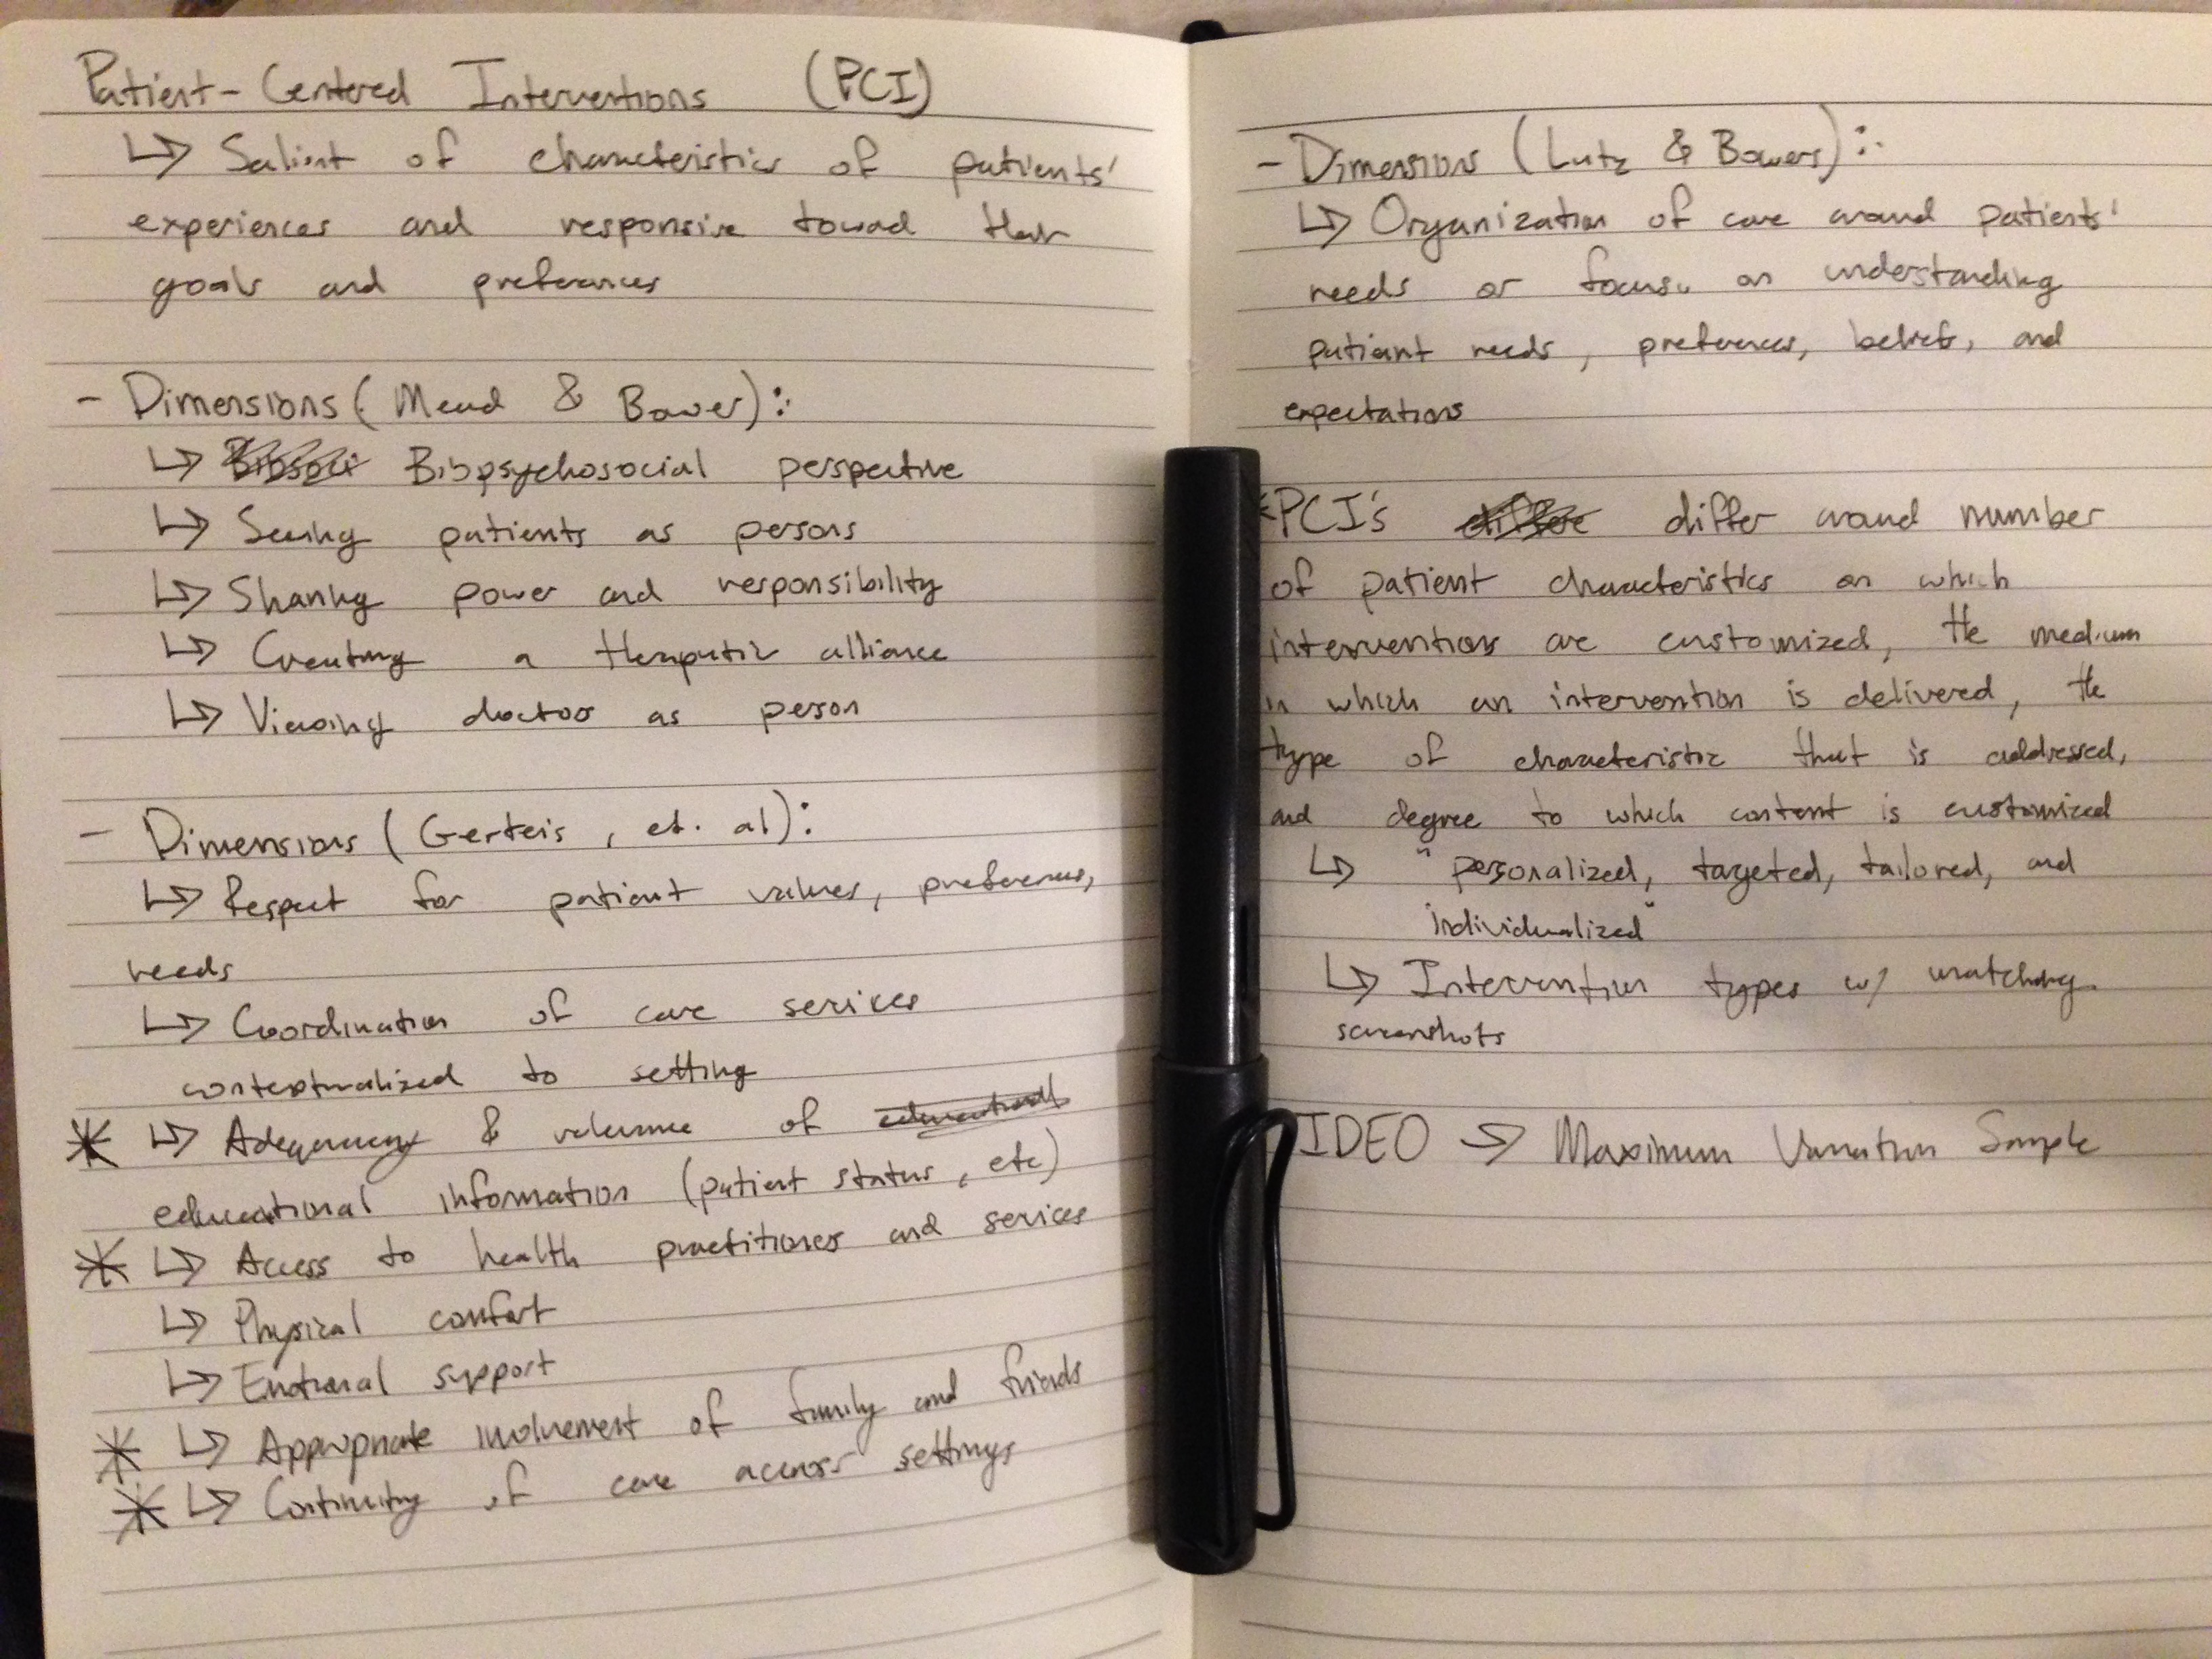 Patient-Centered Interventions (PCI)
↳ Salient of characteristics of patients'
experiences and responsive toward their
goals and preferences
- Dimensions (Mead & Bower):
↳ Biopsychosocial perspective
↳ Seeing patients as persons
↳ Sharing power and responsibility
↳ Creating a theraputic alliance
↳ Viewing doctor as person
- Dimensions (Gerteis, et. al):
↳ Respect for patient values, preferences,
needs
↳ Coordination of care serices
contextualized to setting
* ↳ Adequacy & relevance of educational
educational information (patient status, etc)
* ↳ Access to health practitioners and serices
↳ Physical comfort
↳ Emotional support
* ↳ Appropriate involvement of family and friends
* ↳ Continuity of care across settings
- Dimensions (Lutz & Bowers):
↳ Organization of care around patients'
needs or focus on understanding
patient needs, preferences, beliefs, and
expectations
*PCI's differ around number
of patient characteristics on which
interventions are customized, the medium
in which an intervention is delivered, the
type of characteristic that is addressed,
and degree to which content is customized
↳ "personalized, targeted, tailored, and
individualized"
↳ Intervention types w/ matching
screenshots
IDEO → Maximum Variation Sample